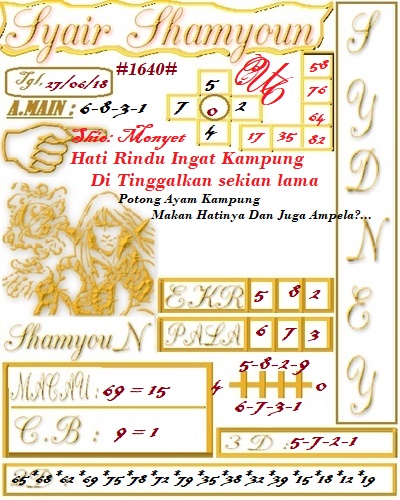 Syair Shamyoun
Tgl. 27/06/18
#1640#
A.MAIN : 6-8-3-1
5
7 0 2
4
UC
58
76
64
17 35 82
Shio: Monyet
Hati Rindu Ingat Kampung
Di Tinggalkan sekian lama
Potong Ayam Kampung
Makan Hatinya Dan Juga Ampela?...
SYDNEY
EKR 5 8 2
Shamyou_N
PALA 6 7 3
MACAU : 69 = 15
C.B : 9 = 1
5-8-2-9
4 0
6-7-3-1
3 D : 5-7-2-1
65*68*62*69*75*78*72*79*35*38*32*39*15*18*12*19